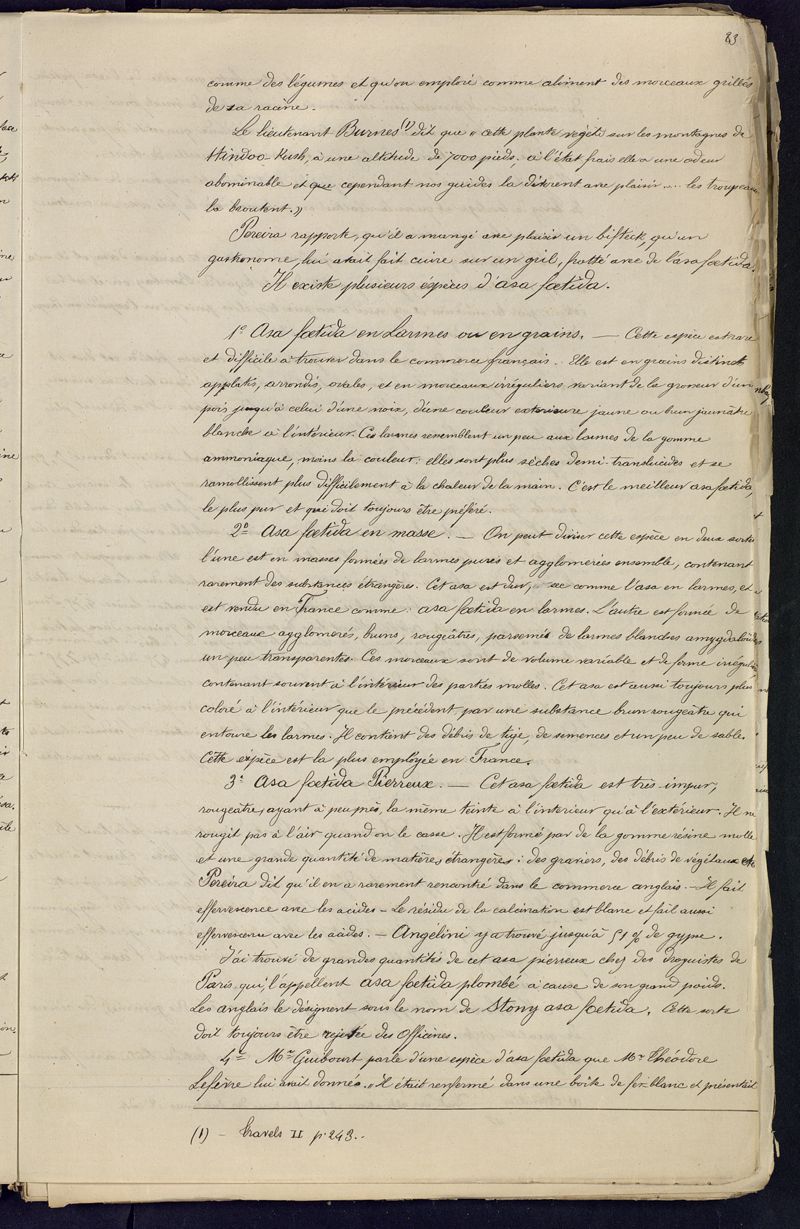 83
comme des légumes et qu'on emploie comme aliment des morceaux grillés
de sa racine.
Le lieutenant Burnes (1) dit que « cette plante végète sur les montagnes de
Hindoo Kush, à une altitude de 7000 pieds. à l'état frais elle a une odeur
abominable et que cependant nos guides la dévorent avec plaisir ... les troupeaux
la broutent. »
Pereira rapporte, qu'il a mangé avec plaisir un bifteck, qu'un
gastronome, lui avait fait cuire sur un gril, frotté avec de l'asa foetida.
Il existe plusieurs éspèces d'asa foetida.
1º Asa foetida en Larmes ou en grains. — Cette espèce est rare
et difficile à trouver dans le commerce français. Elle est en grains distincts
applatis, arrondis, ovales, et en morceaux irréguliers, variant de la grosseur d'un
pois jusqu'à celui d'une noix, d'une couleur extérieure jaune ou brun jaunâtre
blanche à l'intérieur. Ces larmes ressemblent un peu aux larmes de la gomme
ammoniaque, moins la couleur: elles sont plus sèches demi-translucides et se
ramollissent plus difficilement à la chaleur de la main. C'est le meilleur asa foetida,
le plus pur et qui doit toujours être préféré.
2º Asa foetida en masse. — On peut diviser cette espèce en deux sortes
l'une est en masses formées de larmes pures et agglomerées ensemble, contenant
rarement des substances étrangères. Cet asa est dur, sec comme l'asa en larmes, et
est vendu en France comme: asa foetida en larmes. L'autre est formée de
morceaux agglomerés, bruns, rougeâtres, parsemés de larmes blanches amygdaloïdes
un peu transparentes. Ces morceaux sont de volume variable et de forme irrégulière
contenant souvent à l'intérieur des parties molles. Cet asa est aussi toujours plus
coloré à l'intérieur que le précédent par une substance brun rougeâtre qui
entoure les larmes. Il contient des débris de tige, de semences et un peu de sable.
Cette espèce est la plus employée en France.
3º Asa foetida Pierreux. — Cet asa foetida est très-impur,
rougeâtre, ayant à peu près, la même teinte à l'intérieur qu'à l'extérieur. Il ne
rougit pas à l'air quand on le casse. Il est formé par de la gomme résine molle
et une grande quantité de matières étrangères: des graviers, des débris de végétaux etc
Pereira dit qu'il en a rarement rencontré dans le commerce anglais. — Il fait
effervescence avec les acides – Le résidu de la calcination est blanc et fait aussi
effervescence avec les acides. — Angélini y a trouvé jusqu'à 51 % de gypse.
J'ai trouvé de grandes quantités de cet asa pierreux chez des droguistes de
Paris qui, l'appellent asa foetida plombé à cause de son grand poids.
Les anglais le désignent sous le nom de Stony asa foetida. Cette sorte
doit toujours être rejetée des Officines.
4º Mr Guibourt parle d'une espèce d'asa foetida que Mr Théodore
Lefèvre lui avait donnée. « Il était renfermé dans une boîte de fer-blanc et présentait
(1) – Travels II p. 243..